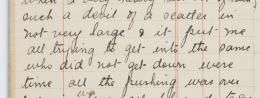 when a very heavy
such a devil of a scatter in
not very large & it put me
all trying to get into the same
who did not get down were
time all the pushing was over